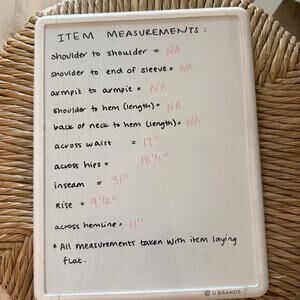 ITEM MEASUREMENTS:
shoulder to shoulder = NA
shoulder to end of sleeve = NA
armpit to armpit = NA
shoulder to hem (length) = NA
back of neck to hem (length) = NA
across waist = 17"
across hips = 18½"
inseam = 31"
Rise = 9½"
across hemline = 11"
* All measurements taken with item laying
flat.
U BRANDS